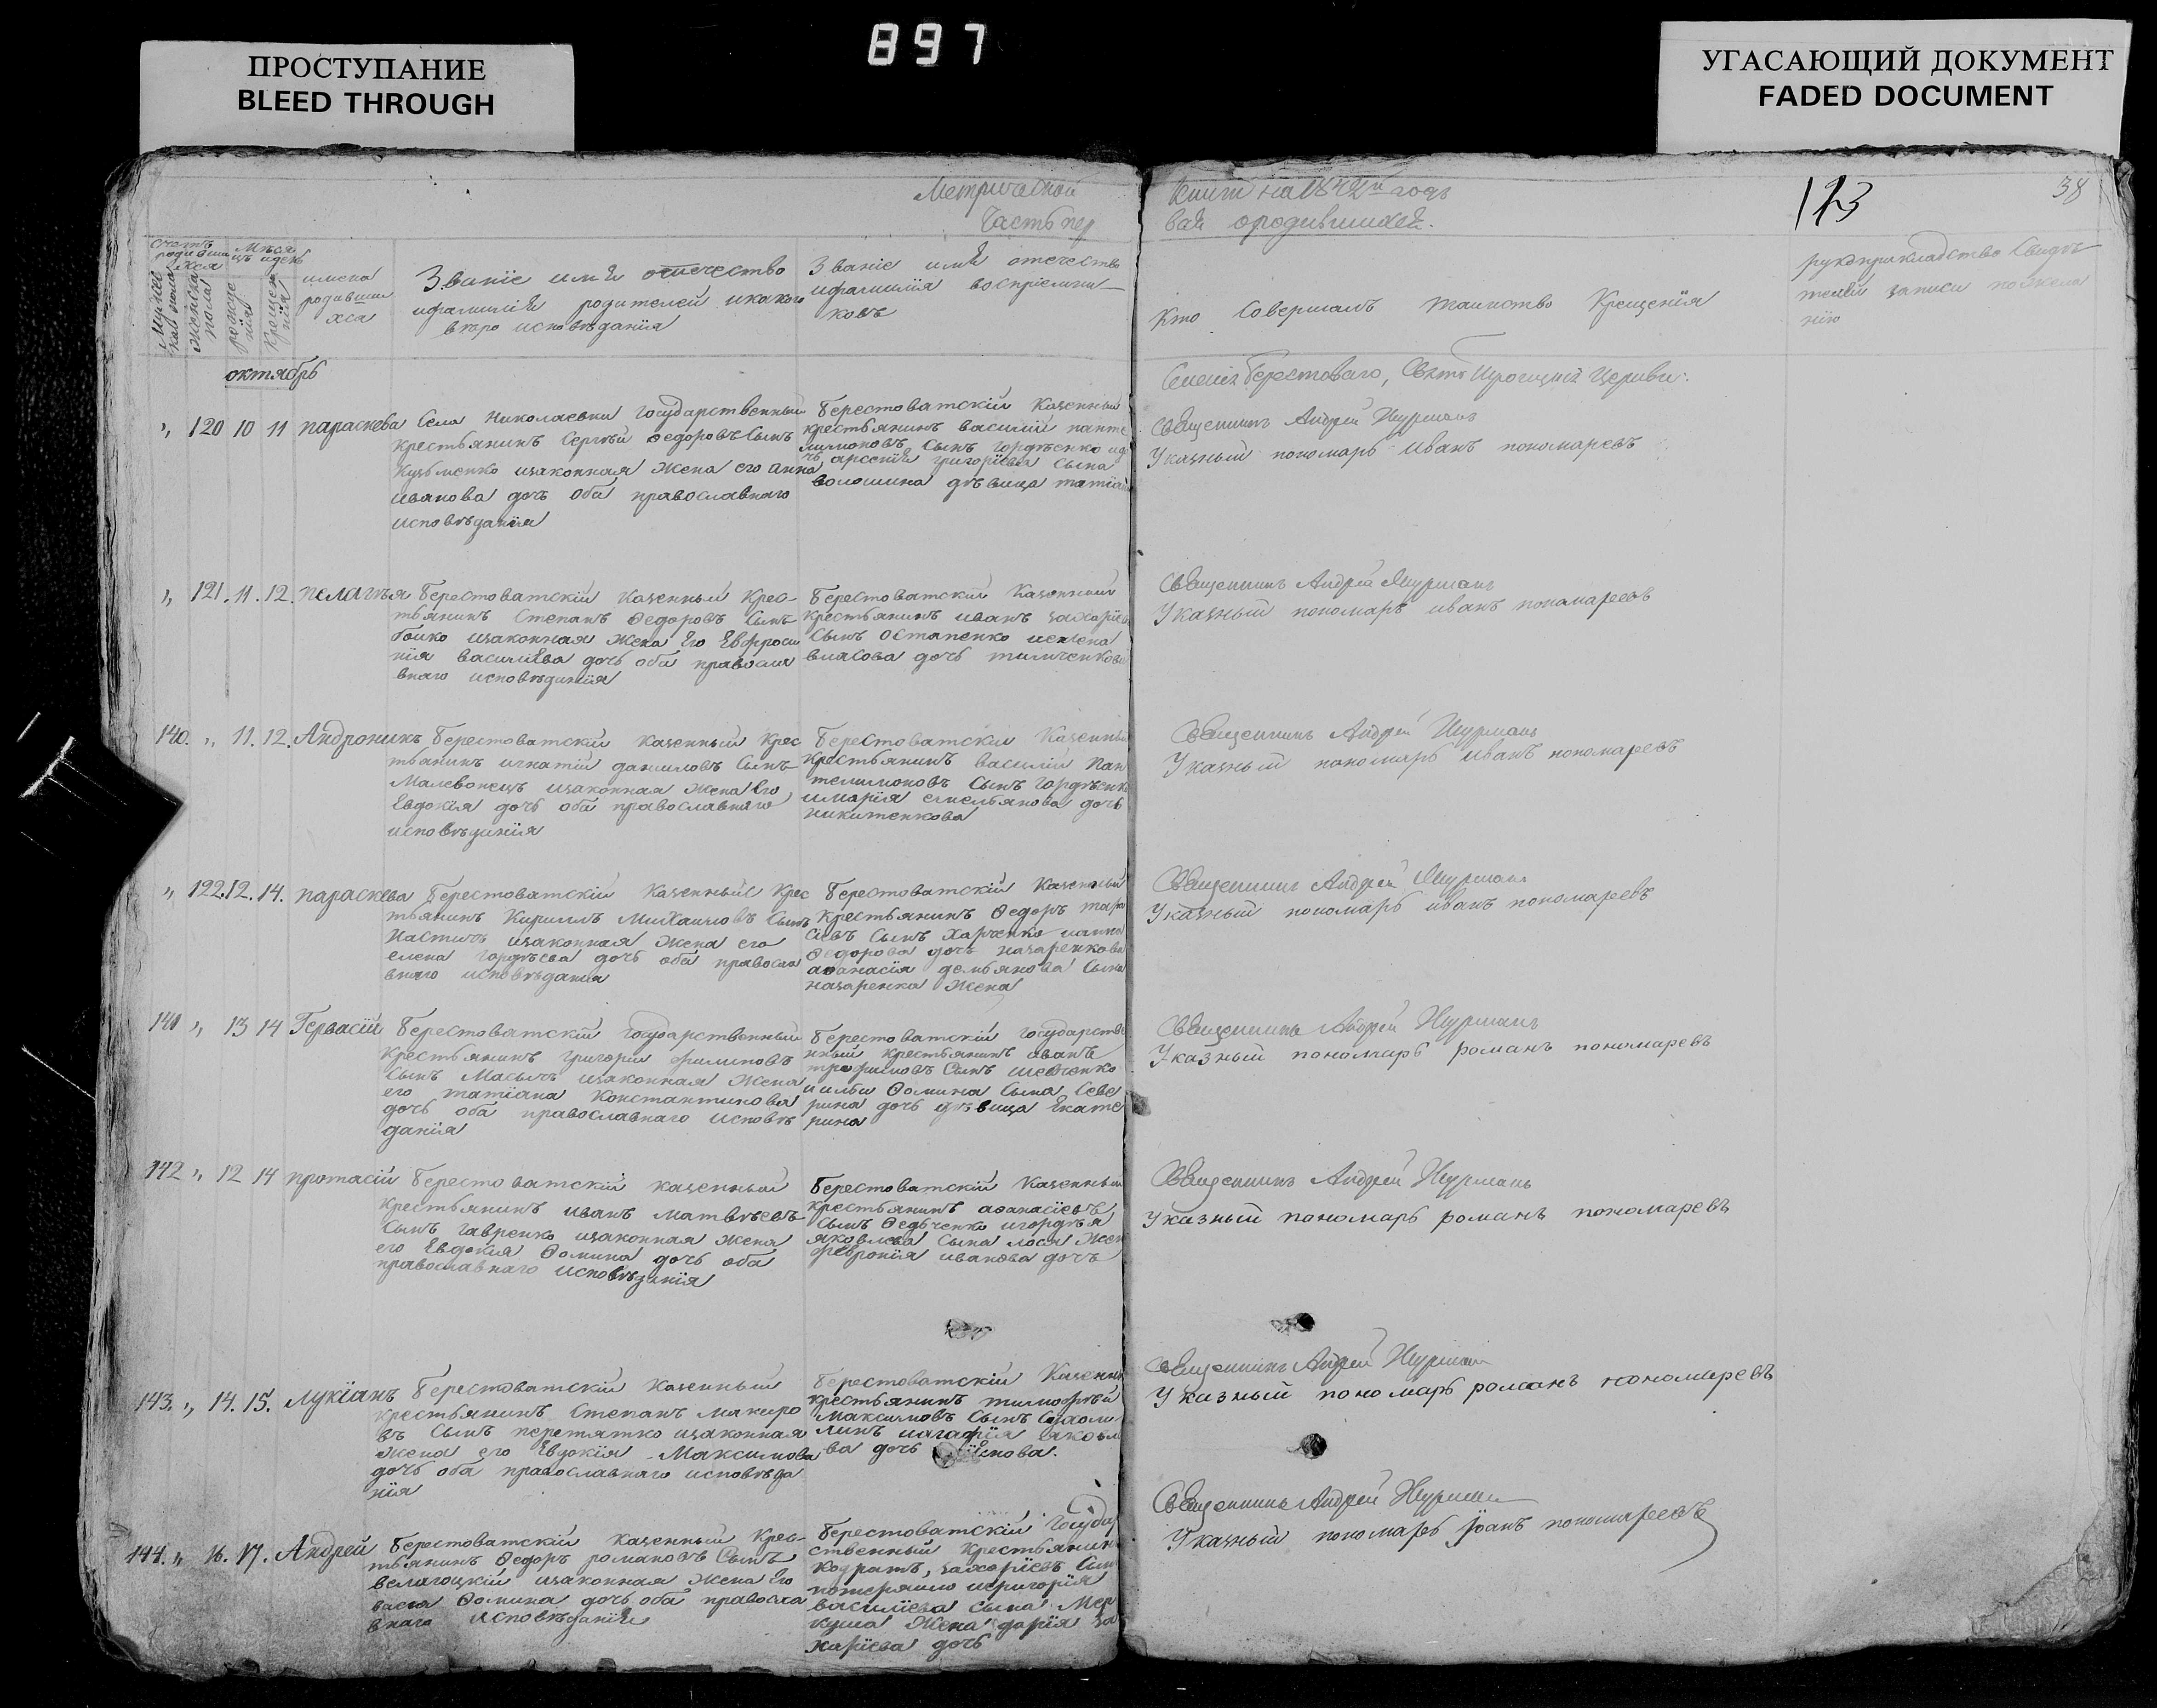 897
ПРОСТУПАНИЕ
BLEED THROUGH
УГАСАЮЩИЙ ДОКУМЕНТ
FADED DOCUMENT
Метрической
Часть пер
книги на 1842й годъ
вая ородившихся.
123
38
Счетъ родившихся
Мужескаго пола
Женска пола
Мѣсяцъ идень
рожденія
Крещенія
имена
родивших
хся
Званіе имя отечество
ифамилія родителей икакого
вѣро исповѣданія
Званіе имя отечество
ифамилія воспріемни
ковъ
Кто Совершалъ таинство Крещенія
рукоприкладство Свидѣ
телей записи пожела
нію
октябрь
Свято Троицкой Церкви.
„ 120 10 11 параскева
Села Николаевки государственный
Крестьянинъ Сергѣй Ѳедоровъ Сынъ
Кузьменко изаконная Жена его анна
иванова дочь оба православнаго
исповѣданія
Берестоватскій Казенный
крестьянинъ василій панте
лимоновъ, Сынъ гордѣенко
григоріева Сына
волошина дѣвица татіан
Священникъ Андрей
Указный пономарь иванъ пономаревъ
„ 121. 11. 12. пелагѣя
Берестоватскій казенный Крес-
тьянинъ Степанъ Ѳедоровъ Сынъ
бойко изаконная жена Его Евфроси
нія васильева дочь оба правосла
внаго исповѣданія
Берестоватскій Казенный
Крестьянинъ иванъ захаріев
Сынъ Остапенко иелена
власова дочь
Священникъ Андрей
Указный пономарь иванъ пономаревъ
140. „ 11. 12. Андроникъ
Берестоватскій казенный Крес
тьянинъ игнатій даниловъ Сынъ
Малеванецъ изаконная жена Его
Евдокія дочь оба православнаго
исповѣданія
Берестоватскій Казенный
Крестьянинъ василій Пан
телимоновъ Сынъ гордѣенк
имарія емельянова дочь
никитенкова
Священникъ Андрей
Указный пономарь иванъ пономаревъ
„ 122. 12. 14. параскева
Берестоватскій казенный Крес
тьянинъ Кириллъ Михаиловъ Сынъ
изаконная жена его
елена гордѣева дочь оба правосла
внаго исповѣданія
Берестоватскій Казенный
Крестьянинъ Ѳедоръ тара
сіевъ Сынъ Харченко ианна
Ѳедорова дочь назаренкова
аѳанасія демьянова Сына
назаренка Жена
Священникъ Андрей
Указный пономарь иванъ пономаревъ
141 „ 13 14 Гервасій
Берестоватскій государственный
Крестьянинъ григорій филиповъ
Сынъ Масычъ изаконная жена
его татіана Константинова
дочь оба православнаго исповѣ
данія
Берестоватскій государстве
нный крестьянинъ иванъ
трофимовъ Сынъ шевченко
иильи Ѳомина Сына Севе
рина дочь дѣвица Екате
рина
Священникъ Андрей
Указный пономарь романъ пономаревъ
142 „ 12 14 протасій
Берестоватскій казенный
Крестьянинъ иванъ матвѣевъ
Сынъ гавренко изаконная жена
его Евдокія Ѳомина дочь оба
православнаго исповѣданія
Берестоватскій Казенный
крестьянинъ аѳанасіевъ
Сынъ Ѳедченко игордѣя
яковлева Сына лося Жен
февронія иванова дочь
Священникъ Андрей
Указный пономарь романъ пономаревъ
143. „ 14. 15. лукіанъ
Берестоватскій казенный
крестьянинъ Степанъ макаро
въ Сынъ перетятко изаконная
жена его Евдокія Максимова
дочь оба православнаго исповѣда
нія
Берестоватскій Казенн
крестьянинъ тимофѣй
Максимовъ Сынъ
иагафія яковл
ва дочь
Священникъ Андрей
Указный пономарь романъ пономаревъ
144. „ 16. 17. Андрей
Берестоватскій казенный Крес-
тьянинъ Ѳедоръ романовъ Сынъ
велигоцкій изаконная жена Его
васса Ѳомина дочь оба правосла
внаго исповѣданія
Берестоватскій Государ
ственный Крестьянин
Кодратъ, захаріевъ Сын
потеряйло игригорія
василіева сына Мер
кула Жена дарія за
харіева дочь
Священникъ Андрей
Указный пономарь іоанъ пономаревъ